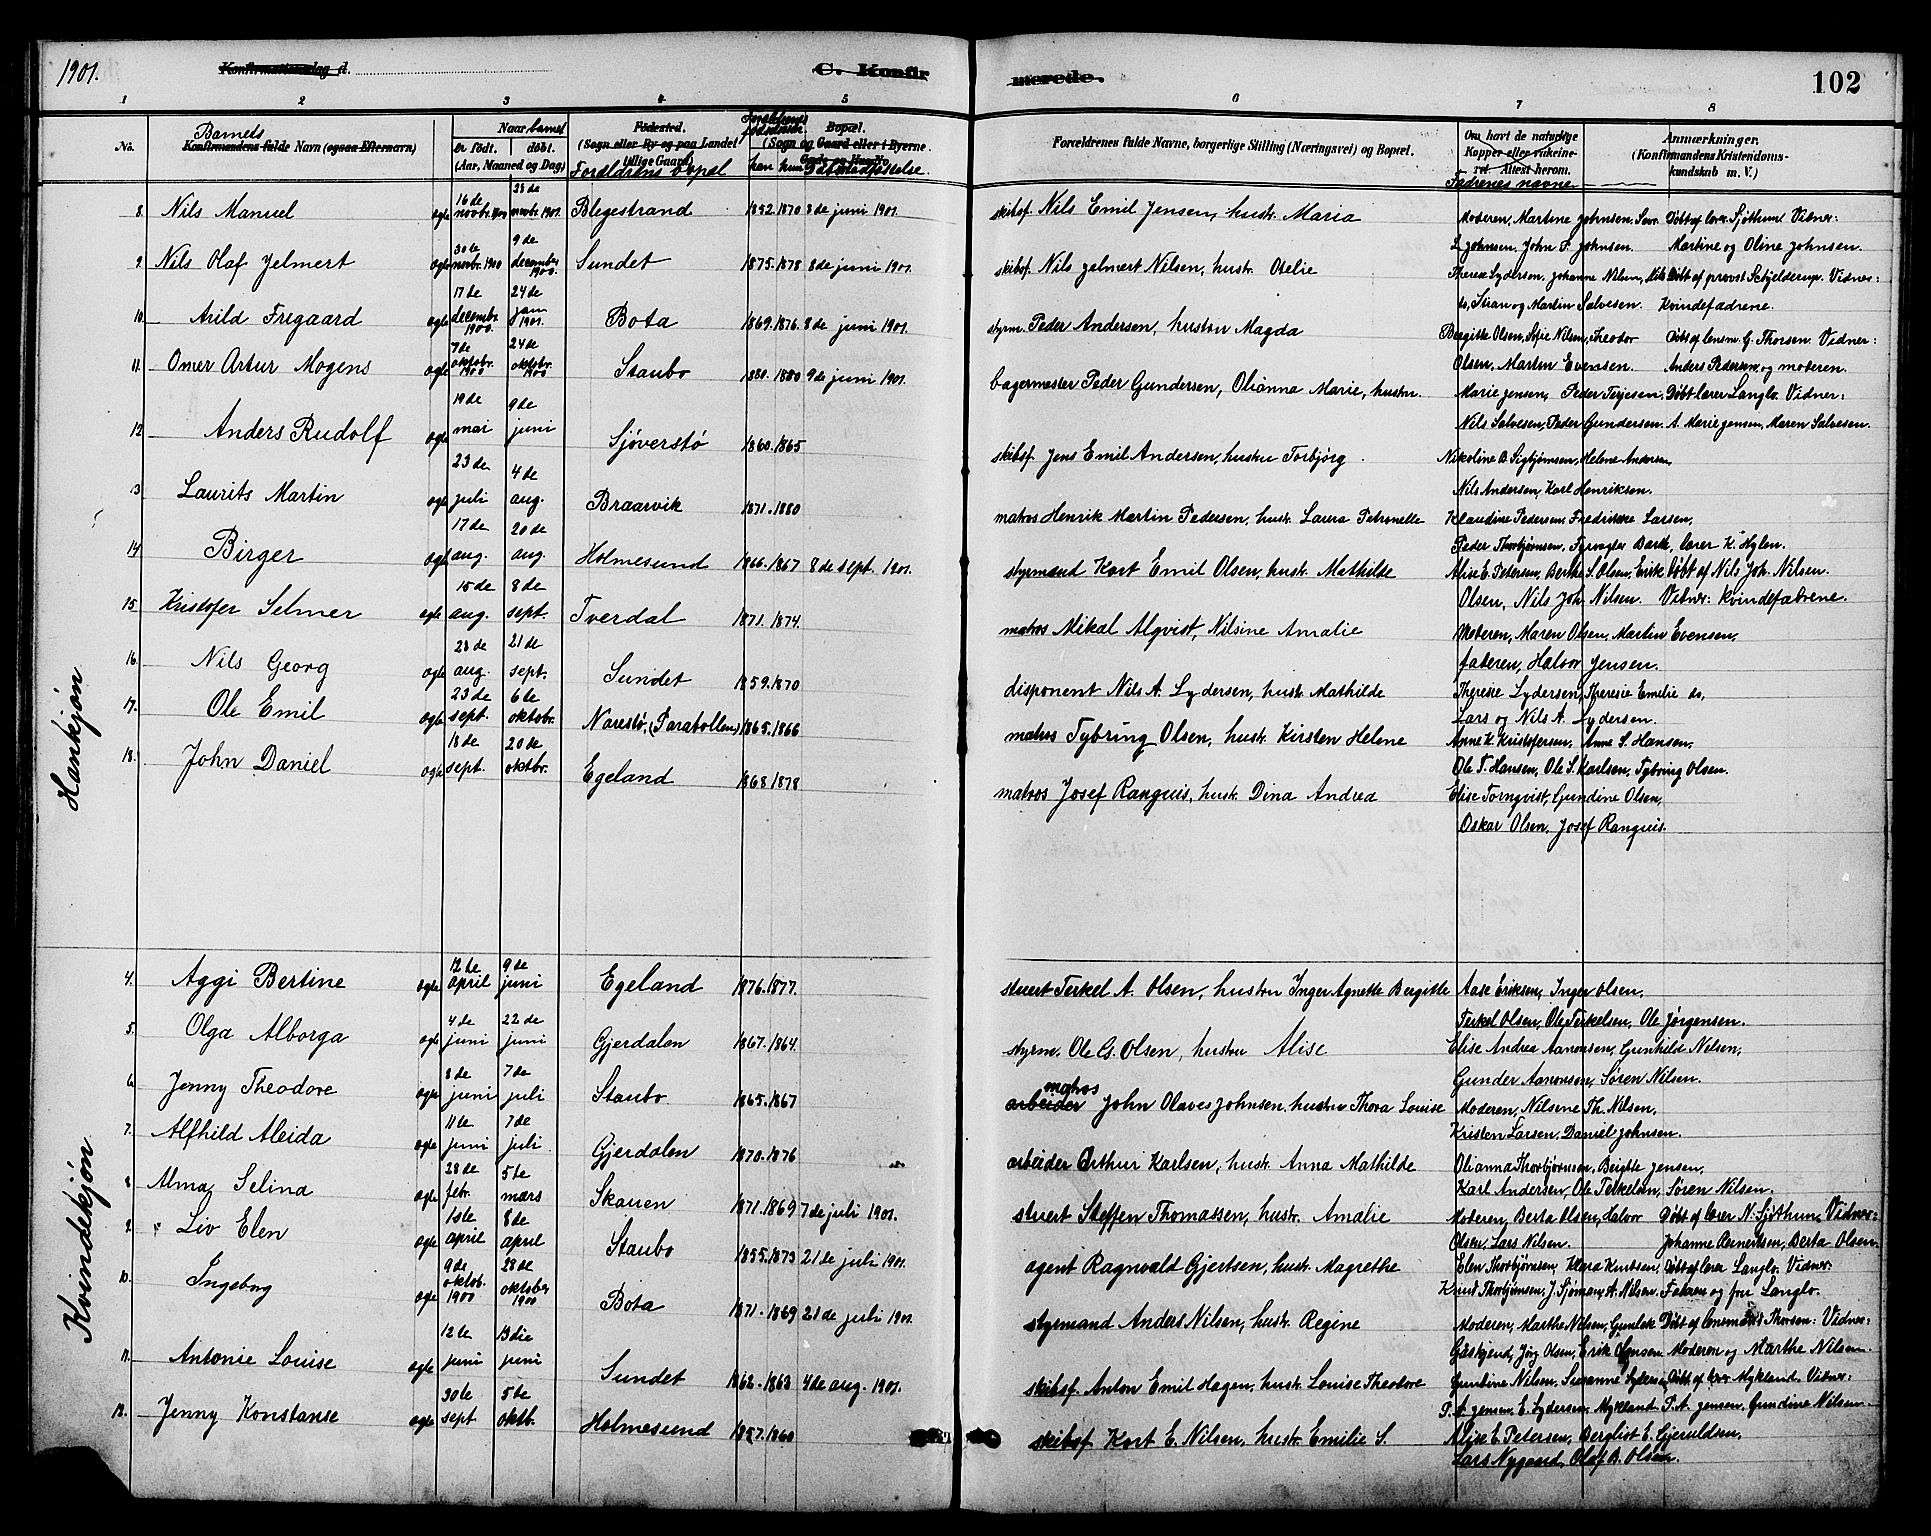 1901.
Konfirmationsdag d.
C. Konfir
merede.
102
1 2 3 4 5 6 7 8
No.
Barnets
Konfirmandens fulde Navn (ogsaa Efternavn)
Naar barnet
er født. døbt.
(Aar, Maaned og Dag)
Fødested.
(Sogn eller By og paa Landet tillige Gaard)
Forældrens bopæl
Forældrenes fødselsaar
han hun
Bopæl.
(Sogn og Gaard eller i Byerne Gade og Husno.)
Daabsstadfæstelse.
Forældrenes fulde Navne, borgerlige Stilling (Næringsvei) og Bopæl.
Om havt de naturlige Kopper eller vakcineret. Attest herom.
Fadrenes navne
Anmærkninger.
(Konfirmandens Kristendomskundskab m. V.)
Hankjøn
8. Nils Manuel ogte 16 de novbr. 1900 28 de novbr. 1900. Blegestrand 1852. 1870 8 de juni 1901. skibsf. Nils Emil Jensen, hustr. Maria Moderen, Martine Johnsen, Døbt af lærer Sjøthun Vidner:
L Johnsen, John P. Johnsen. Martine og Oline Johnsen.
9. Nils Olaf Jelmert ogte 30 te novbr. 1900 9 de december 1900. Sundet 1875. 1878 8 de juni 1901. skibsf. Nils Jelmert Nilsen, hustr. Otelie Therese Lydersen, Johanne Nilsen, Nils Døbt af provst Schjelderup. Vidner:
Stian og Martin Salvesen. Kvindefadrene.
10. Arild Fregaard ogte 17 de decembr. 1900. 24 de jan 1901. Bota 1869. 1876. 8 de juni 1901. styrm. Peder Andersen, hustru Magda Bergitte Olsen, Sofie Nilsen, Theodor Døbt af lensm. G. Thorsen. Vidner:
Olsen, Marten Evensen. Anders Pedersen og moderen.
11. Omer Artur Mogens ogte 7 de oktobr. 1900 24 de oktobr. 1900 Staubo 1880. 1880 9 de juni 1901. bagermester Peder Gundersen, Olianna Marie, hustru. Marie Jensen, Peder Terjesen, Døbt lærer Langlo. Vidner:
Nils Salvesen, Peder Gundersen. A. Marie Jensen, Maren Salvesen.
12. Anders Rudolf ogte 19 de mai 9 de juni Sjøverstø 1860. 1865 skibsf. Jens Emil Andersen, hustru Torbjørg. Nikoline B. Sigbjørnsen, Helene Andersen,
Nils Andersen, Karl Henriksen.
13. Laurits Martin ogte 23 de juli 4 de aug. Braarvik 1871. 1880 matros Henrik Martin Pedersen, hustr. Laura Petronelle Klaudine Pedersen, Fredrikke Larsen,
Peder Thorbjørnsen, Fyrvogter Barth, lærer K. Myklen.
14. Birger ogte 17 de aug. 20 de aug. Holmesund 1866. 1867 8 de sept. 1901. styrmand Kort Emil Olsen, hustr. Mathilde Alise E. Petersen, Berthe S. Olsen, Erik Døbt af Nils Joh. Nilsen.
Olsen, Nils Joh. Nilsen. Vidner: Kvindefadrene.
15. Kristofer Selmer ogte 15 de aug. 8 de sept. Tverdal 1871. 1874. matros Mikal Alqvist, Nilsine Amalie Moderen, Maren Olsen, Martin Evensen,
faderen, Halvor Jensen.
16. Nils Georg ogte 28 de aug. 21 de sept. Sundet 1859. 1870 disponent Nils A. Lydersen, hustr. Mathilde Theresie Lydersen, Theresie Emilie do,
Lars og Nils A. Lydersen.
17. Ole Emil ogte 23 de sept. 6 te oktobr. Narestø, (Parabollen) 1865. 1866 matros Tybring Olsen, hustr. Kirsten Helene Anne K. Kristofersen, Anne S. Hansen,
Ole T. Hansen, Ole S. Karlsen, Tybring Olsen.
18. John Daniel ogte 18 de sept. 20 de oktbr. Egeland 1868. 1878 matros Josef Ranguis, hustr. Dina Andrea Elise Tornqvist, Gundine Olsen,
Oskar Olsen, Josef Ranguis.
Kvindekjøn
4. Aggi Bertine ogte 12 te april 9 de juni Egeland 1876. 1877. stuert Terkel A. Olsen, hustru Inger Agnette Bergitte Aase Eriksen, Inger Olsen,
Terkel Olsen, Ole Terkelsen, Ole Jørgensen.
5. Olga Alborga ogte 4 de juni 22 de juni Gjerdalen 1867. 1864. styrm. Ole G. Olsen, hustru Alise Elise Andrea Aanonsen, Gunhild Nilsen,
Gunder Aanonsen, Søren Nilsen.
6. Jenny Theodore ogte 8 de juni 7 de juli Staubo 1865. 1867 arbeider matros John Olaves Johnsen, hustru Thora Louise Moderen, Nilsene Th. Nilsen,
Kristen Larsen, Daniel Johnsen.
7. Alfhild Aleida ogte 11 te juni 7 de juli Gjerdalen 1870. 1876 arbeider Arthur Karlsen, hustr. Anna Mathilde Olianna Thorbjørnsen, Bergitte Jensen,
Karl Andersen, Ole Terkelsen, Søren Nilsen.
8. Alma Selina ogte 28 de febr. 5 te mars Skauen 1871. 1869 7 de juli 1901. stuert Steffen Thomassen, hustr. Amalie Moderen, Berta Olsen, Halvor Døbt af lærer N. Sjøthun. Vidner:
Olsen, Lars Nilsen. Johanne Reinertsen, Berta Olsen.
9. Liv Elen ogte 1ste april 8 de april Staubo 1855. 1873 21 de juli 1901. agent Ragnvald Gjertsen, hustr. Magrethe Elen Thorbjørnsen, Klara Knutsen, Døbt af lærer Langlo. Vidner:
Knut Thorbjørnsen, J. Sjøman, A. Nilsen. Faderen og fru Langlo.
10. Ingeborg ogte 9 de oktob. 1900 28 de oktober 1900 Bota 1871. 1869 21 de juli 1901. styrmand Anders Nilsen, hustr. Regine Moderen, Marthe Nilsen, Gunlek Døbt af lensmand Thorsen: Vidner:
Gåskjend, Jørg Olsen, Erik Jensen Moderen og Marthe Nilsen.
11. Antonie Louise ogte 12 te juni 13 de juni Sundet 1862. 1863 4 de aug. 1901. skibsf. Anton Emil Hagen, hustr. Louise Theodore Gundine Nilsen, Susanne Lydersen, Døbt af lærer Mykland. Vidner:
P. A. Jensen, E. Lydersen, Mykland P. A. Jensen, Gundine Nilsen.
12. Jenny Konstanse ogte 30 te sept 5 de oktb. Holmesund 1857. 1860 skibsf. Kort E. Nilsen, hustr. Emilie S. Alise E. Petersen, Bergliot E. Gjeruldsen,
Lars Nygaard, Olaf B. Olsen.